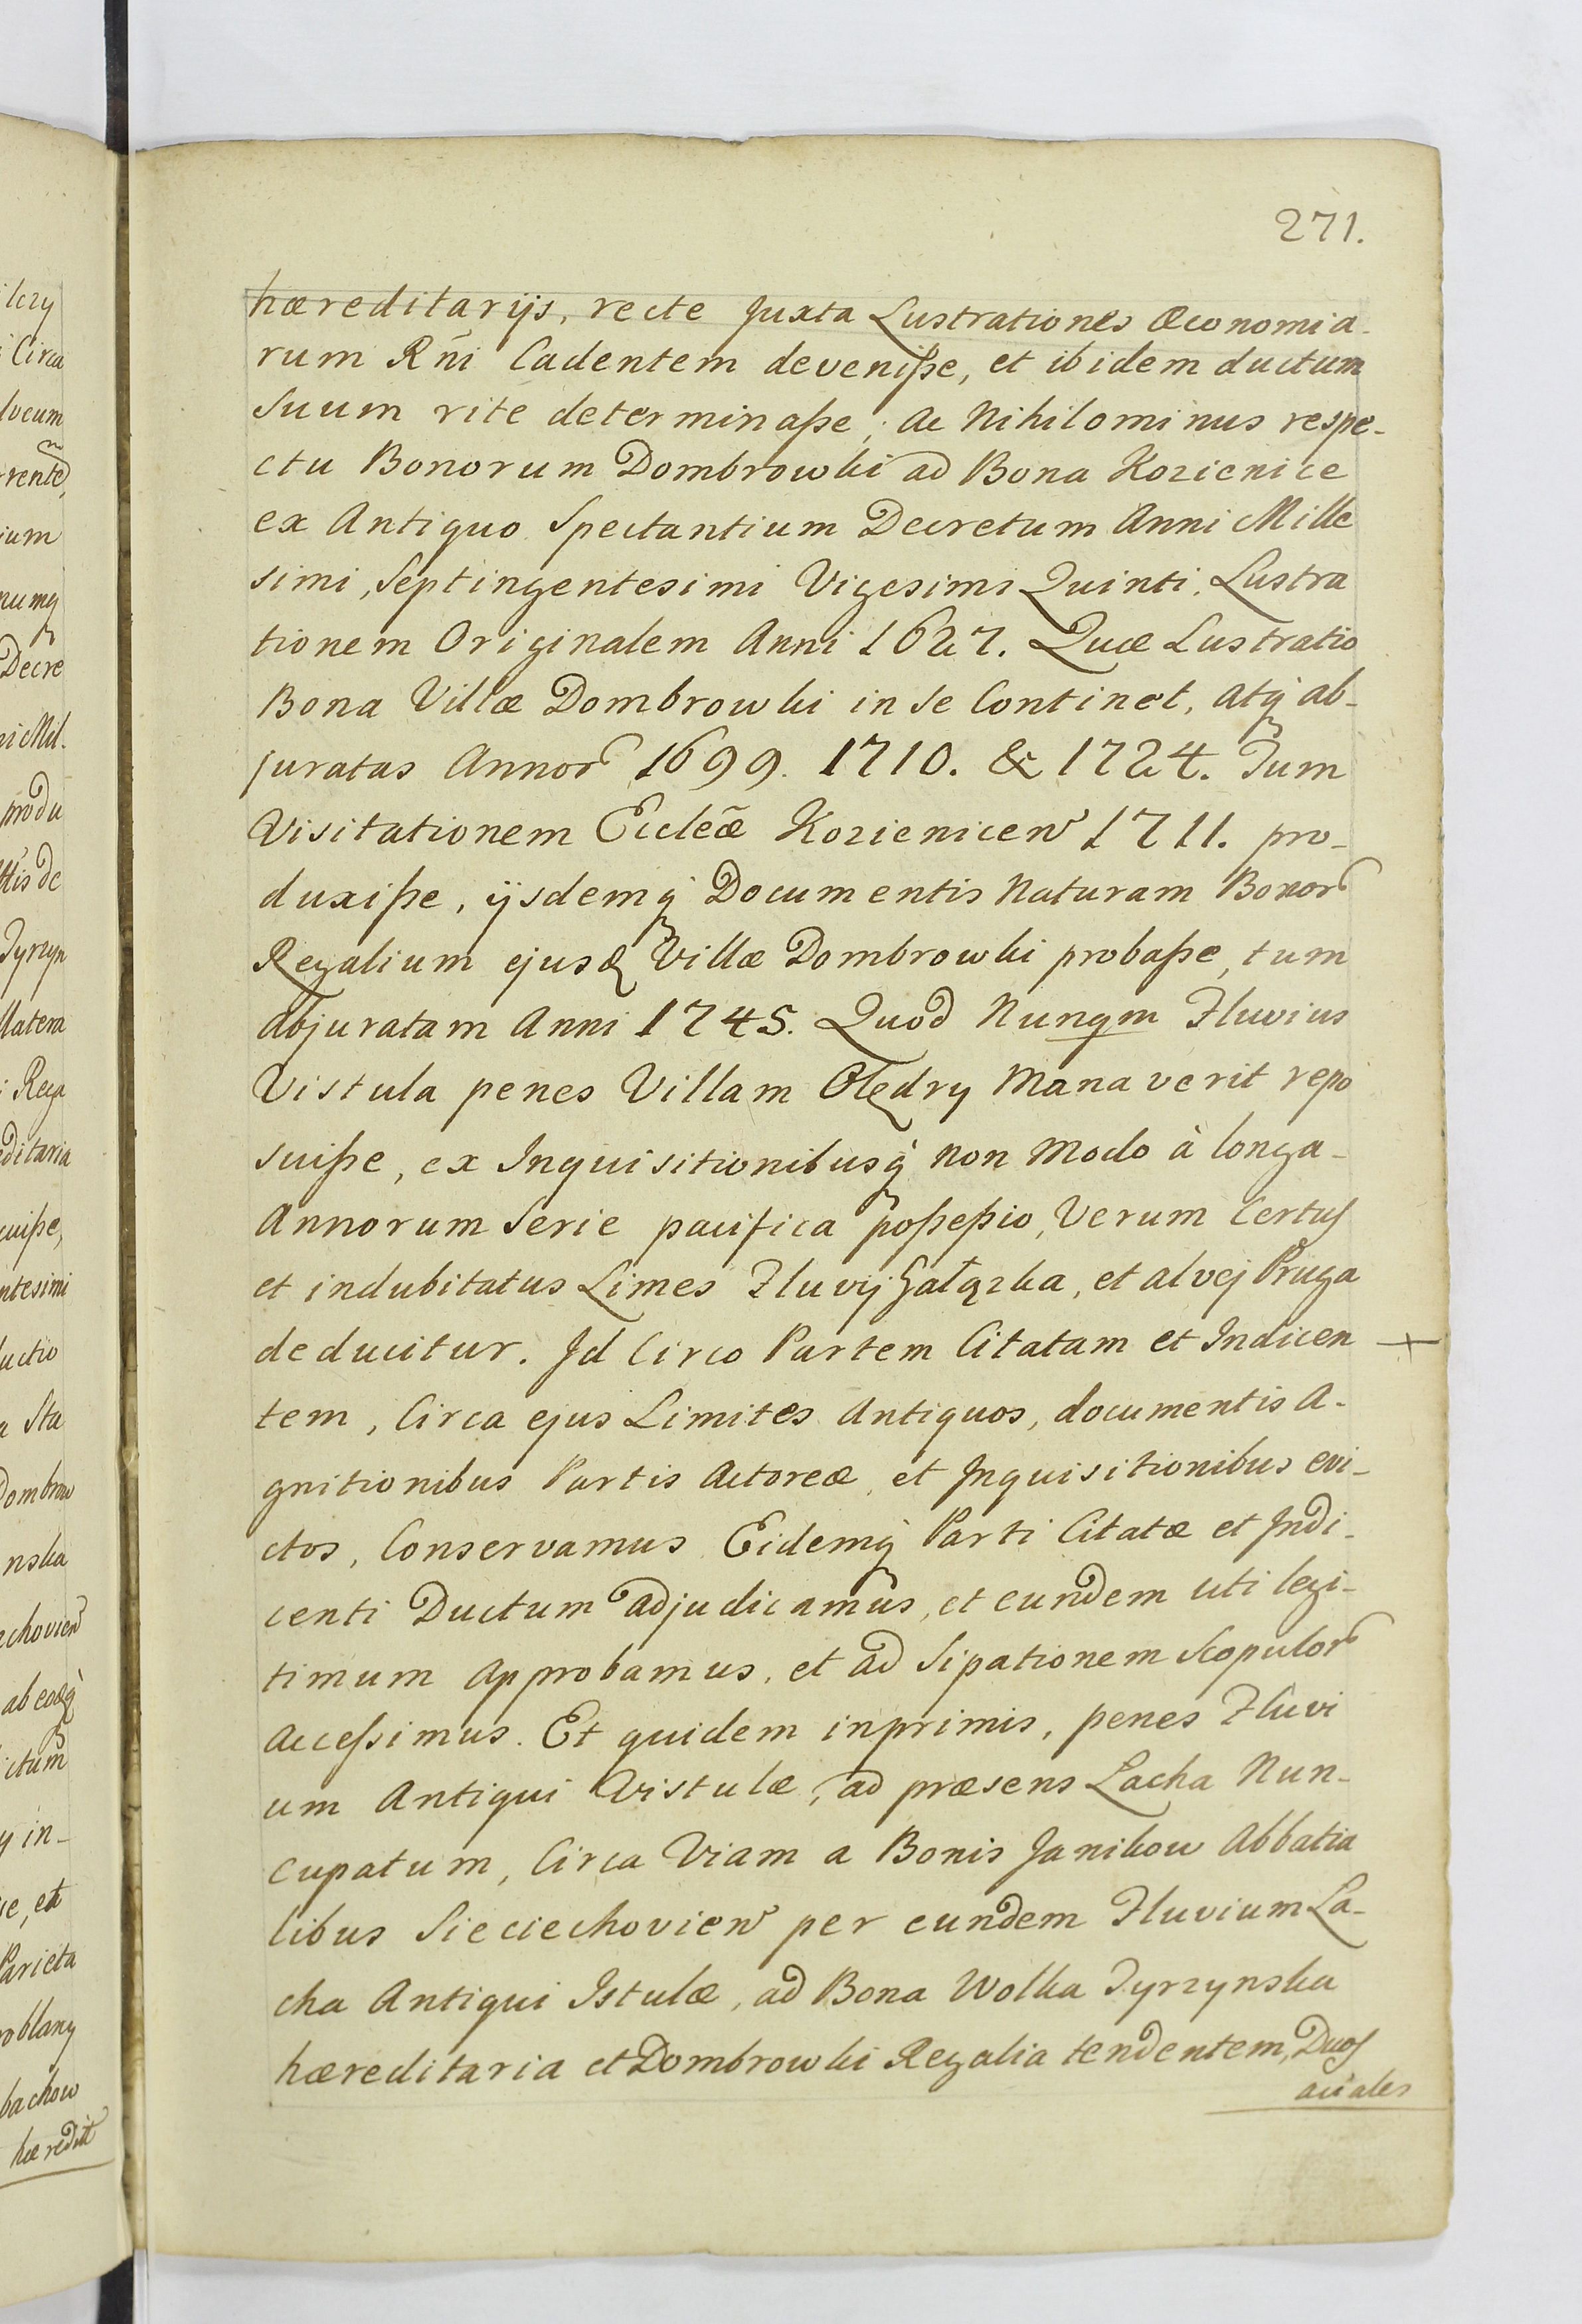 271.
hæreditarijs, recte Juxta Lustrationes Œconomia-
rum Rñi Cadentem devenisse, et ibidem ductum
Suum rite determinasse; Ac Nihilominus respe-
ctu Bonorum Dombrowki ad Bona Kozienice
ex Antiquo Spectantium Decretum Anni Mille
simi, Septingentesimi Vigesimi Quinti, Lustra
tionem Originalem Anni 1627. Quæ Lustratio
Bona Villæ Dombrowki in Se Continet, atq́ ab-
juratas Annor 1699. 1710. & 1724. Tum
Visitationem Eccleæ̃ Kozienicen 1711. pro-
duxisse, ijsdemq́ Documentis Naturam Bonor
Regalium ejusd Villæ Dombrowki probasse, tum
abjuratam Anni 1745. Quod Nunqm Fluvius
Vistula penes Villam Olędry Manaverit repo
suisse, ex Inquisitionibusq́ non Modo à longa-
Annorum Serie pacifica possessio, Verum Certus
et indubitatus Limes Fluvij Gałązka, et alvej Pruga
deducitur. Id Circo Partem Citatam et Indicen +
tem, Circa ejus Limites Antiquos, documentis A-
gnitionibus Partis Actoreæ, et Inquisitionibus evi-
ctos, Conservamus Eidemq́ Parti Citatæ et Indi-
centi Ductum adjudicamus, et eundem uti legi-
timum Approbamus, et ad Sipationem Scopulor
Accessimus. Et quidem inprimis, penes Fluvi
um Antiqui Vistulæ, ad præsens Lacha Nun-
cupatum, Circa Viam a Bonis Janikow Abbatia
libus Sieciechovien per eundem Fluvium La-
cha Antiqui Istulæ, ad Bona Wolka Tyrzynska
hæreditaria et Dombrowki Regalia tendentem, Duos
aciales